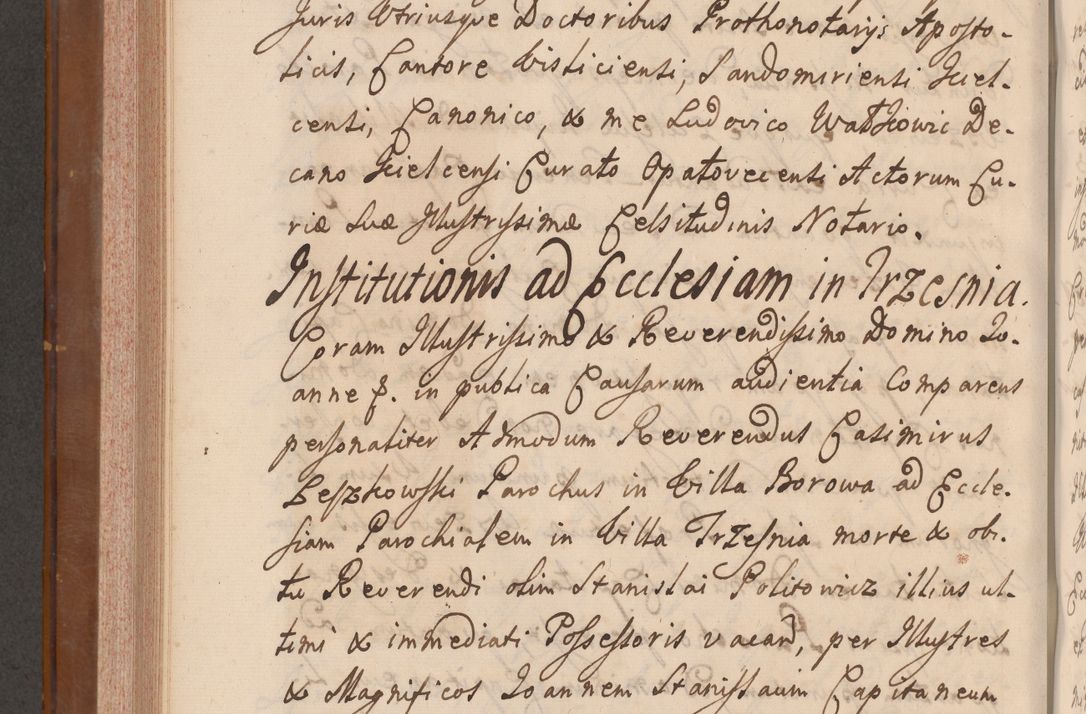 Juris Utriusque Doctoribus Prothonotarijs Aposto-
licis, Cantore Visliciensi, Sandomiriensi Kiel-
censi, Canonico, & me Ludovico Watkowic De-
cano Kielcensi Curato Opatovecensi Actorum Cu-
riæ Suæ Illustrissimæ Celsitudinis Notario.
Institutionis ad Ecclesiam in Trzesnia.
Coram Illustrissimo & Reverendissimo Domino Jo-
anne &. in publica Causarum audientia Comparens
personaliter Admodum Reverendus Casimirus
Leszkowski Parochus in Villa Borowa ad Eccle-
siam Parochialem in Villa Trzesnia morte & obi-
tu Reverendi olim Stanislai Politowicz illius ul-
timi & immediati Possessoris vacan, per Illustres
& Magnificos Joannem Stanislaum Capitaneum